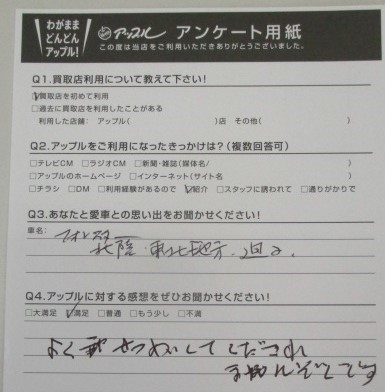 わがまま
どんどん
アップル!
アップル アンケート用紙
この度は当店をご利用いただきありがとうございました。
Q1.買取店利用について教えて下さい!
☑買取店を初めて利用
□過去に買取店を利用したことがある
利用した店舗: アップル( )店 その他( )
Q2.アップルをご利用になったきっかけは?(複数回答可)
□テレビCM □ラジオCM □新聞・雑誌(媒体名/ )
□アップルのホームページ □インターネット(サイト名 )
□チラシ □DM □利用経験があるので ☑紹介 □スタッフに誘われて □通りがかりで
Q3.あなたと愛車との思い出をお聞かせください!
車名:
北陸・東北地方
Q4.アップルに対する感想をぜひお聞かせください!
□大満足 ☑満足 □普通 □もう少し □不満
よく してくだされ